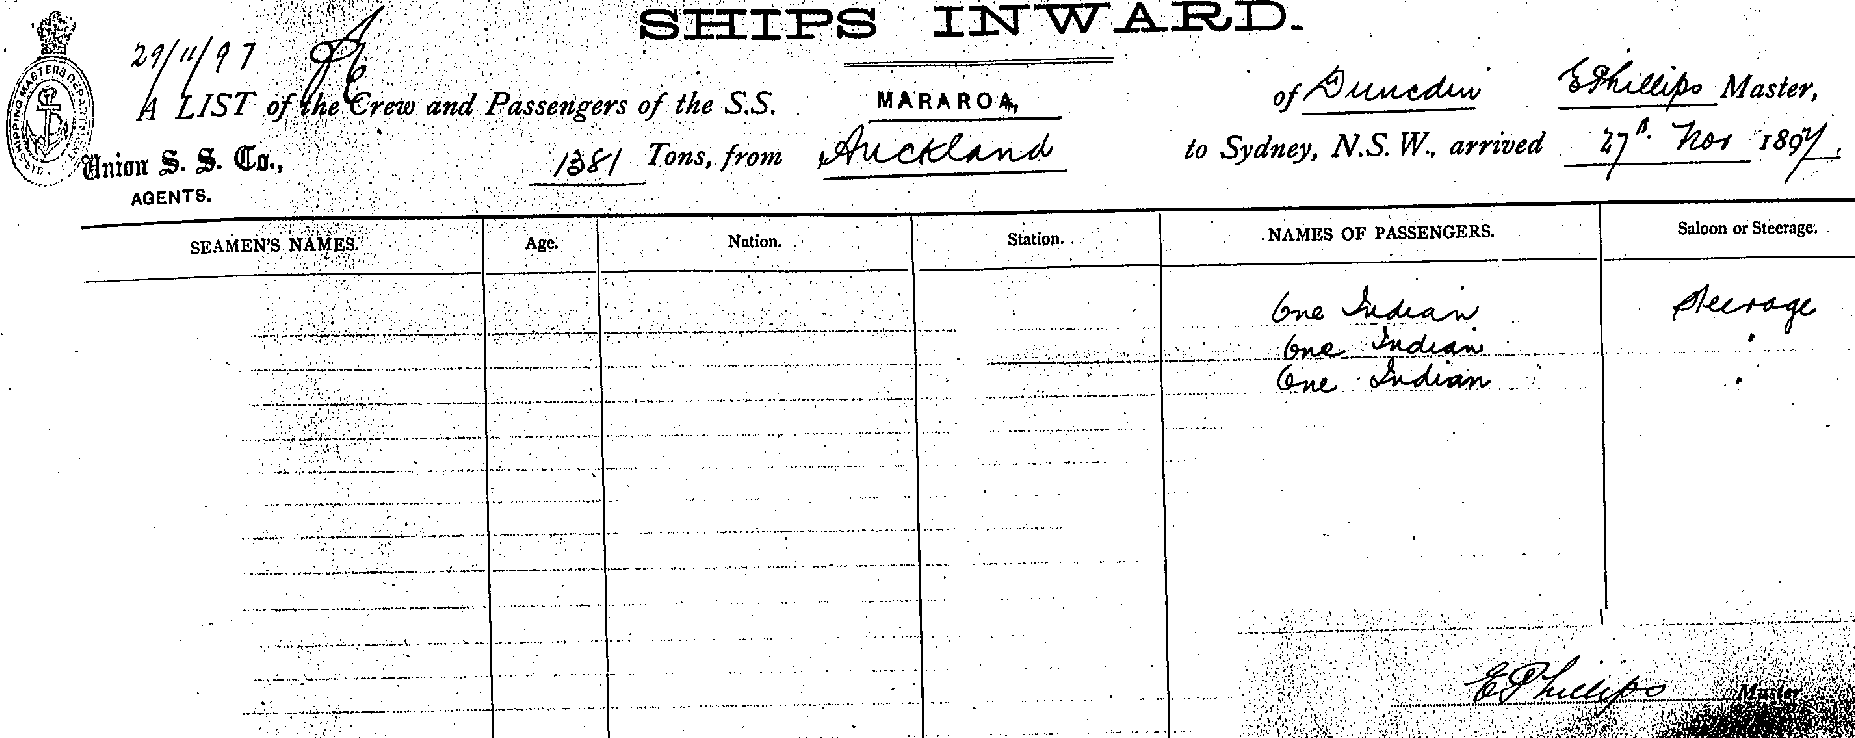 SHIPS INWARD.
29/11/97
A LIST of the Crew and Passengers of the S.S. MARAROA, of Dunedin E Phillips Master,
Union S. S. Co., AGENTS.
1381 Tons, from Auckland to Sydney, N.S.W., arrived 27th Nov 1897.
SEAMEN'S NAMES. Age. Nation. Station. NAMES OF PASSENGERS. Saloon or Steerage.
One Indian Steerage
One Indian "
One Indian "
E Phillips Master